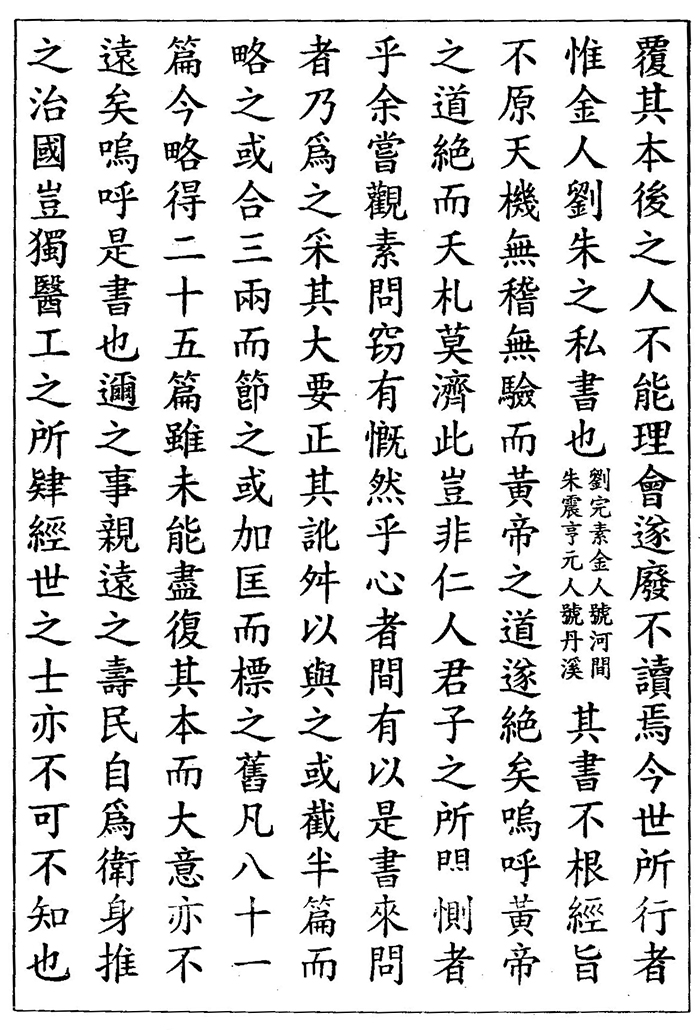 覆其本後之人不能理會遂廢不讀焉今世所行者
惟金人劉朱之私書也劉完素金人號河間朱震亨元人號丹溪其書不根經旨
不原天機無稽無驗而黃帝之道遂絕矣嗚呼黃帝
之道絕而夭札莫濟此豈非仁人君子之所惻者
乎余嘗觀素問窃有慨然乎心者間有以是書來問
者乃爲之采其大要正其訛舛以與之或截半篇而
略之或合三兩而節之或加匡而標之舊凡八十一
篇今略得二十五篇雖未能盡復其本而大意亦不
遠矣嗚呼是書也邇之事親遠之壽民自爲衛身推
之治國豈獨醫工之所肄經世之士亦不可不知也